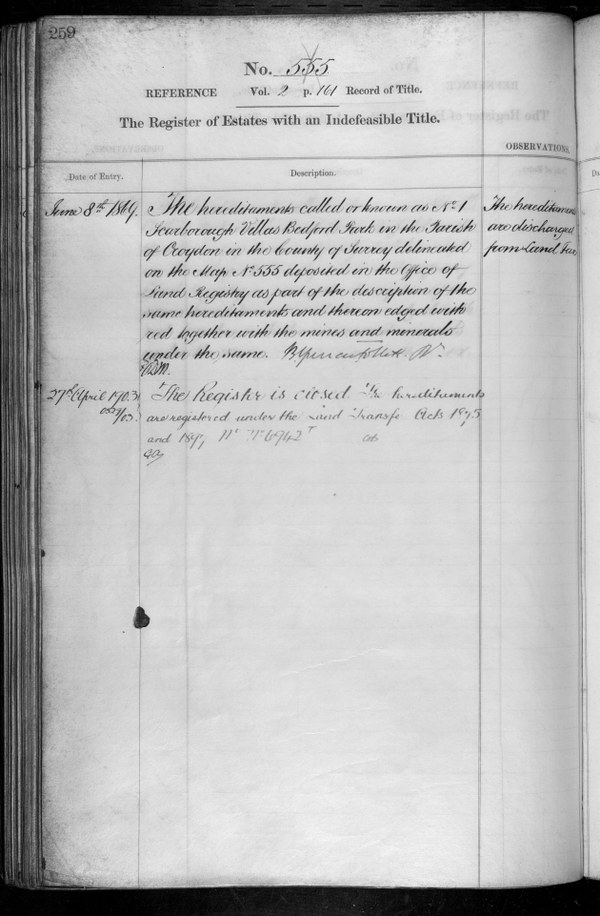 259
No. 555
REFERENCE Vol. 2 p. 161 Record of Title.
The Register of Estates with an Indefeasible Title.
OBSERVATIONS.
Date of Entry.
Description.
June 8th 1869.
The hereditaments called or known as No. 1
Scarborough Villas Bedford Park in the Parish
of Croydon in the County of Surrey delineated
on the Map No. 555 deposited in the Office of
Land Registry as part of the description of the
same hereditaments and thereon edged with
red together with the mines and minerals
under the same.
The hereditaments
are discharged
from Land Tax
27th April 1903
The Register is closed. The hereditements
are registered under the Land Transfer Acts 1875
and 1897